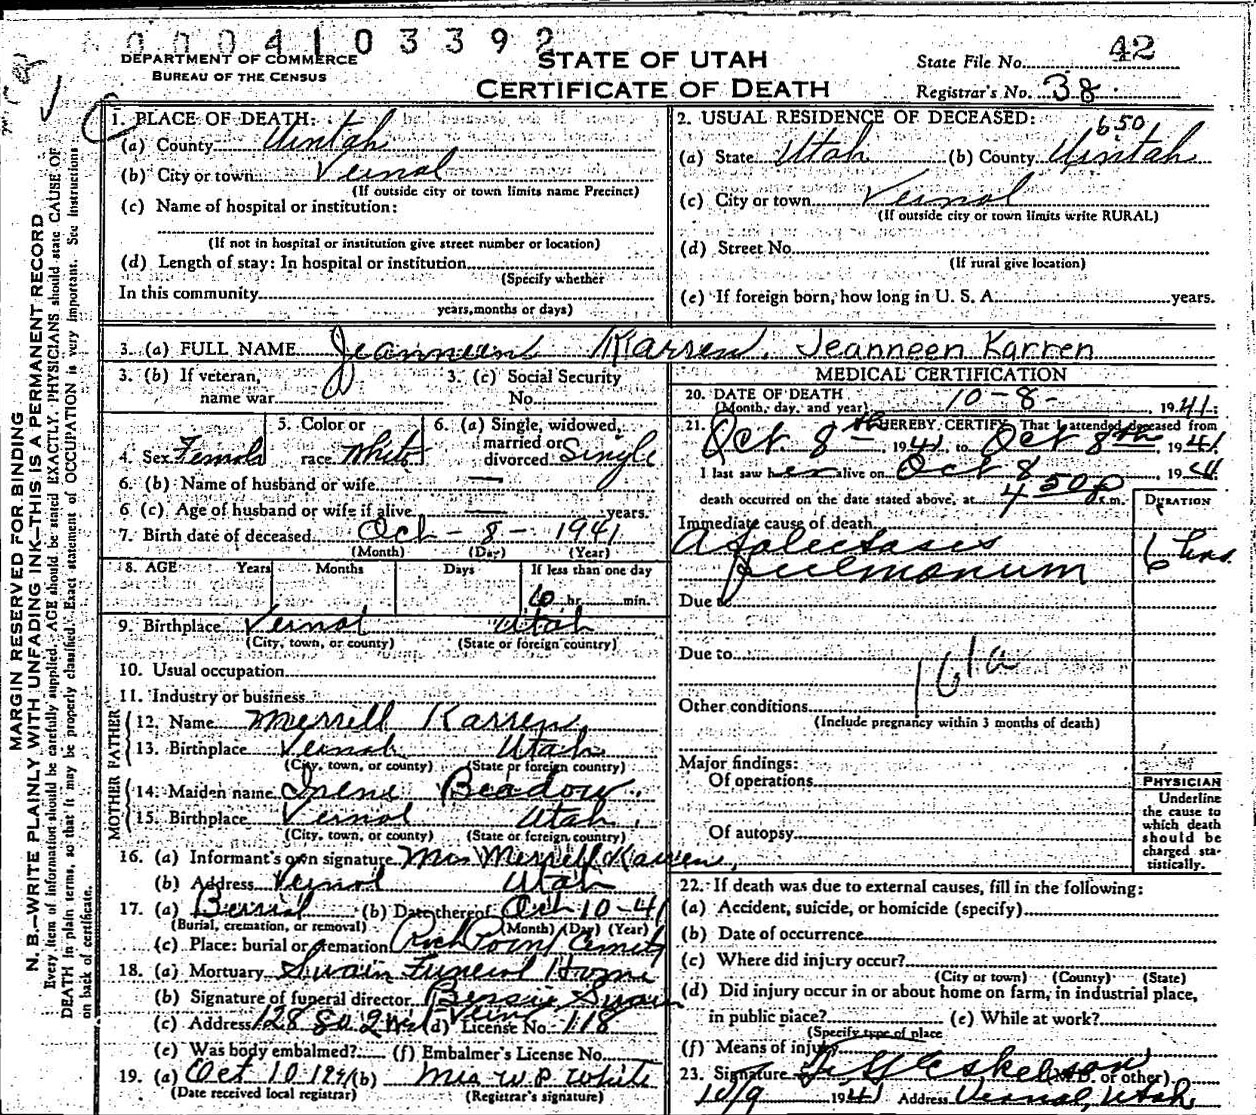 0004103392
DEPARTMENT OF COMMERCE
BUREAU OF THE CENSUS
STATE OF UTAH
CERTIFICATE OF DEATH
State File No. 42
Registrar's No. 38
MARGIN RESERVED FOR BINDING
N. B.—WRITE PLAINLY WITH UNFADING INK—THIS IS A PERMANENT RECORD
Every item of information should be carefully supplied. AGE should be stated EXACTLY. PHYSICIANS should state CAUSE OF
DEATH in plain terms, so that it may be properly classified. Exact statement of OCCUPATION is very important. See Instructions
on back of certificate.
1. PLACE OF DEATH:
(a) County Uintah
(b) City or town Vernal
(If outside city or town limits name Precinct)
(c) Name of hospital or institution:
(If not in hospital or institution give street number or location)
(d) Length of stay: In hospital or institution
(Specify whether
In this community
years, months or days)
2. USUAL RESIDENCE OF DECEASED: 650
(a) State Utah (b) County Uintah
(c) City or town Vernal
(If outside city or town limits write RURAL)
(d) Street No.
(If rural give location)
(e) If foreign born, how long in U. S. A. years.
3. (a) FULL NAME Jeanneen Karren. Jeanneen Karren
3. (b) If veteran,
name war
3. (c) Social Security
No.
4. Sex Female
5. Color or
race White
6. (a) Single, widowed,
married or
divorced Single
6. (b) Name of husband or wife —
6 (c) Age of husband or wife if alive — years.
7. Birth date of deceased Oct - 8 - 1941
(Month) (Day) (Year)
8. AGE Years Months Days If less than one day
10 hr. min.
9. Birthplace Vernal Utah
(City, town, or county) (State or foreign country)
10. Usual occupation
11. Industry or business
FATHER
12. Name Merrell Karren
13. Birthplace Vernal Utah
(City, town, or county) (State or foreign country)
MOTHER
14. Maiden name Irene
15. Birthplace Vernal Utah
(City, town, or county) (State or foreign country)
16. (a) Informant's own signature Mrs Merrell Karren
(b) Address Vernal Utah
17. (a) Burial (b) Date thereof Oct 10-41
(Burial, cremation, or removal) (Month) (Day) (Year)
(c) Place: burial or cremation Rock Point Cemety
18. (a) Mortuary Swain Funeral Home
(b) Signature of funeral director Swain
(c) Address 128 So 2 W Vern (d) License No. 118
(e) Was body embalmed? (f) Embalmer's License No.
19. (a) Oct 10 1941 (b) Mrs W. P. White
(Date received local registrar) (Registrar's signature)
MEDICAL CERTIFICATION
20. DATE OF DEATH
(Month, day, and year) 10-8- 1941
21. I HEREBY CERTIFY, That I attended deceased from
Oct. 8th 1941 to Oct 8th 1941
I last saw her alive on Oct 8 19
death occurred on the date stated above, at 4 50 p m.
DURATION
Immediate cause of death
Atalectasis 6 hrs.
pulmonum
Due to
Due to
161a
Other conditions
(Include pregnancy within 3 months of death)
Major findings:
Of operations
Of autopsy
PHYSICIAN
Underline
the cause to
which death
should be
charged sta-
tistically.
22. If death was due to external causes, fill in the following:
(a) Accident, suicide, or homicide (specify)
(b) Date of occurrence
(c) Where did injury occur?
(City or town) (County) (State)
(d) Did injury occur in or about home on farm, in industrial place,
in public place? (e) While at work?
(Specify type of place
(f) Means of injury
23. Signature Eskelson (M.D. or other)
10/9 1941 Address Vernal, Utah